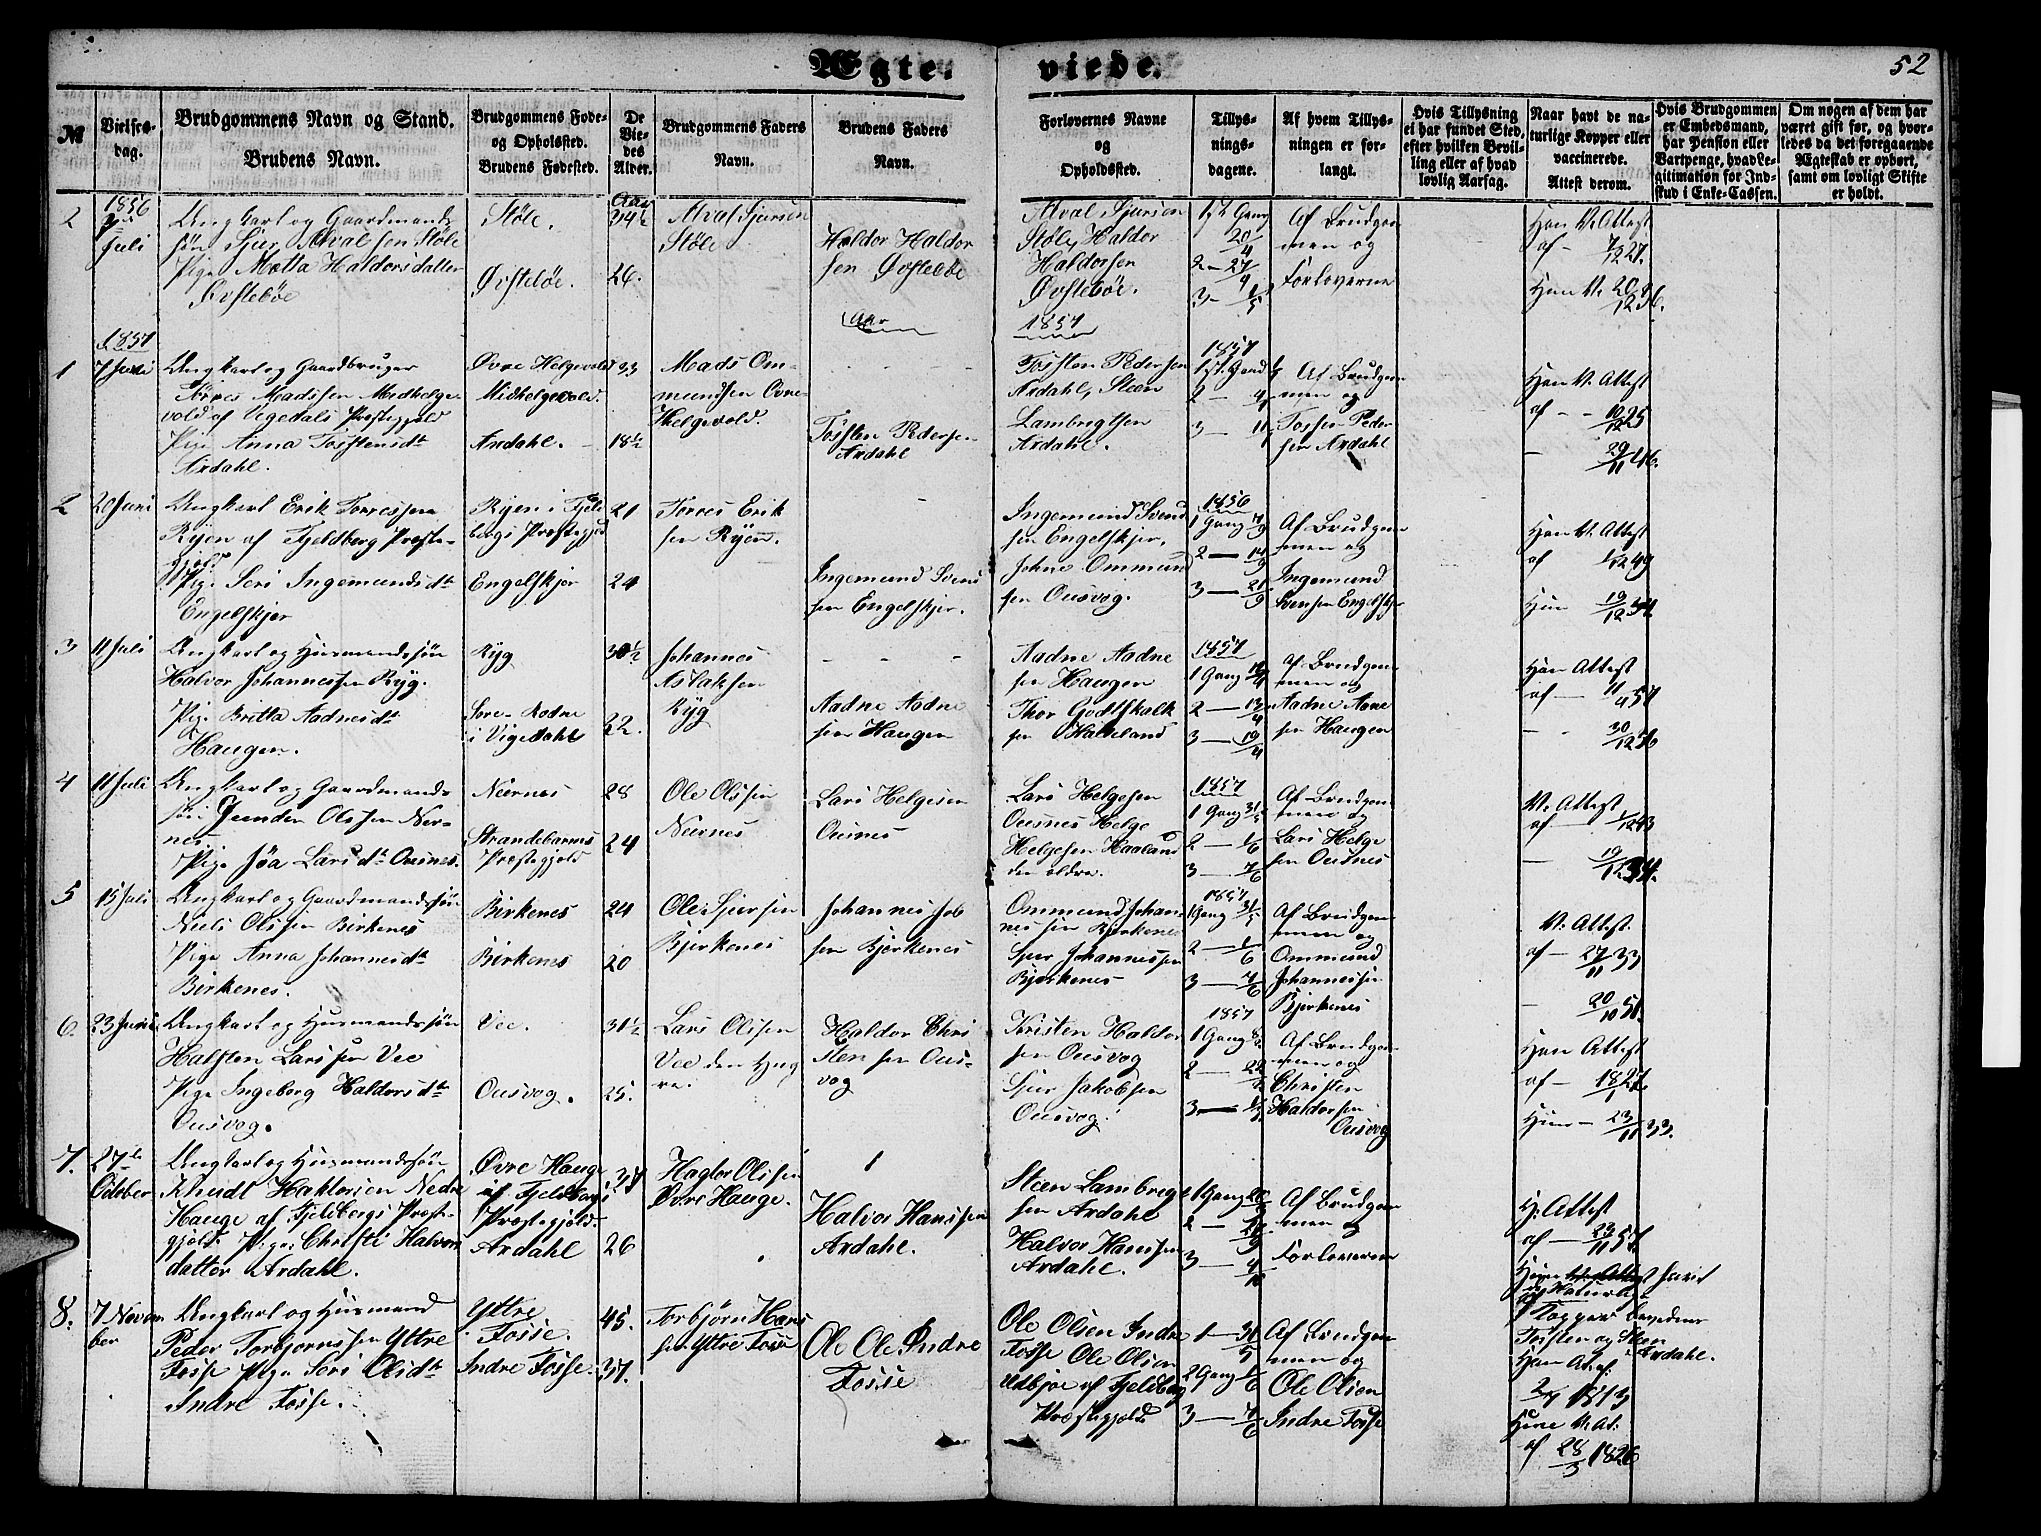 Ægte. viede. 52
M
Vielses-
dag.
Brudgommens Navn og Stand.
Brudens Navn.
Brudgommens Føde-
og Opholdssted.
Brudens Fødested.
De
Vie-
des
Alder.
Brudgommens Faders
Navn.
Brudens Faders
Navn.
Forlovernes Navne
og
Opholdssted.
Tillys-
nings-
dagene.
Af hvem Tillys-
ningen er for-
langt.
Hvis Tillysning
ei har fundet Sted,
efter hvilken Bevil-
ling eller af hvad
lovlig Aarsag.
Naar havt de na-
turlige Kopper eller
vaccinerede.
Attest derom.
Hvis Brudgommen
er Embedsmand,
har Pension eller
Vartpenge, hvad Le-
gitimation for Ind-
skud i Enke-Cassen.
Om nogen af dem har
været gift før, og hvor-
ledes da det foregaaende
Ægteskab er ophørt,
samt om lovligt Skifte
er holdt.
1856
2
Juli
Ungkarl og Gaardmands
søn Sjur Atvalsen Støle
Pige Metta Haldorsdatter
Øvstebøe
Støle.
Øvstebøe.
Aar
34½
26.
Atval Sjursen
Støle
Haldor Haldor
sen Øvstebøe
Atval Sjursen
Støle, Haldor
Haldorsen
Øvstebøe.
1ste Gang
20/4
2 - 27/4
3 -
Af Brudgom
men og
Forloverne
Han V. Attest
af 7/12 27.
Hun V. 20/12 36.
Aar 1857
1857
1
7 Juni
Ungkarl og Gaardbruger
Tørres Madssen Medhelge
vold af Vigedals Præstegjeld
Pige Anna Tostensdt
Ardahl.
Øvre Helgevold
Midhelgevold.
Ardahl.
33
18½
Mads Om-
mundsen Øvre
Helgevold.
Tosten Pedersen
Ardahl
Tosten Pedersen
Ardahl, Steen
Lambregtsen
Ardahl.
1857
1ste Gang
2 -
3 -
Af Brudgom
men og
Tosten Peder
sen Ardahl
Han V. Attest
af - - 10/12 25
- 29/11 46.
2
20 Juni
Ungkarl Erik Torressen
Ryen af Fjeldberg Præste-
gjeld
Pige Seri Ingemundsdt
Engelskjer
Ryen i Fjeld
bergs Præstegjeld
Engelskjer
21
24
Torres Erik
sen Ryen.
Ingemund Svend
sen Engelskjer.
Ingemund Svend
sen Engelskjer,
Johne Ommund
sen Ousvog.
1856
1 Gang 7/9
2 - 14/9
3 - 21/9
Af Brudgom
men og
Ingemund
Svensen Engelskjer
Han V. Attest
af 1/12 49
Hun 19/12
3
11 Juli
Ungkarl og Husmandssøn
Halvor Johannessen Ryg.
Pige Britta Aadnesdt
Haugen.
Ryg
Søre-Rodne
i Vigedahl
30½
22.
Johannes
Aslaksen
Ryg
Aadne Aadne
sen Haugen
Aadne Aadne
sen Haugen
Thor Godtskalk
sen Halleland
1857
1 Gang
2 - 13/4
3 - 19/4
Af Brudgom
men og
Aadne Aadne
sen Haugen
Han Attest
af - 11/4 57
- - 30/12 56
4
11 Juli
Ungkarl og Gaardmands
søn Ole Olssen Nær-
nes
Pige Joa Larsdt Ousnes.
Nærnes
Strandebarmes
Præstegjeld
28
24
Ole Olssen
Nærnes
Lars Helgesen
Ousnes
Lars Helgesen
Ousnes Helge
Helgesen Haaland
den eldre.
1857
1 Gang 31/5
2 - 1/6
3 - 7/6
Af Brudgom
men og
Lars Helge
sen Ousnes
V. Attest
af - 1/12 43
- 19/12 34.
5
15 Juli
Ungkarl og Gaardmandssøn
Niels Olssen Birkenes
Pige Anna Johannesdt
Birkenes.
Birkenes
Birkenes
24
20
Ole Sjursen
Bjerkenes
Johannes Job
sen Bjerkenes
Ommund Johan-
nessen Bjerkenes
Sjur Johannessen
Bjerkenes
1857
1 Gang 31/5
2 - 1/6
3 - 7/6
Af Brudgom
men og
Ommund
Johannessen
Bjerkenes
V. Attest.
af - 27/11 33
- 20/10 50.
6.
23 Juni
Ungkarl og Husmandssøn
Halsten Larssen Vee
Pige Ingeborg Haldorsdt
Ousvog.
Vee.
Ousvog.
31½
25.
Lars Olssen
Vee den Yng
re.
Haldor Chri
stensen Ous-
vog
Kristen Haldor
sen Ousvog
Sjur Jakobsen
Ousvog.
1857
1 Gang
2 -
3 -
Af Brudgom-
men og
Christen
Haldorsen
Ousvog
Han Attest
af - 18/ 27.
Hun - 23/11 33.
7.
27de
October
Ungkarl og Husmandssøn
Knudt Haktorsen Nedre
Hauge af Fjeldbergs Præste-
gjeld. Pige Christi Halvors
datter Ardahl.
Øvre Hauge
af Fjeldbergs
Præstegjeld.
Ardahl
37
26
Hagtor Olssen
Øvre Hauge.
Halvor Hanssen
Ardahl.
Steen Lambregt
sen Ardahl
Halvor Hanssen
Ardahl.
1 Gang 20/
2 -
3 - 4/10
Af Brudgom
men og
Forloverne
H. Attest
af - 23/11 57.
Hun havt
Naturlige
Kopper bevidner
Tosten og Sten
Ardahl.
8.
7 Novem
ber
Ungkarl og Husmand
Peder Torbjørnssen Yttre
Fosse Pige Seri Olsdt
Indre Fosse.
Yttre
Fosse.
Indre Fosse.
45.
37.
Torbjørn Hans
sen Yttre Fosse
Ole Ole Indre
Fosse
Ole Olsen Indre
Fosse Ole Olsen
Utbjoe af Fjeldberg
Præstegjeld
1 - 31/5
2 Gang 1/6
3 - 7/6
Af Brudgom
men og
Ole Olsen
Indre Fosse
Han At. af
2/4 1813
Hun V. At.
af 28/3 1826